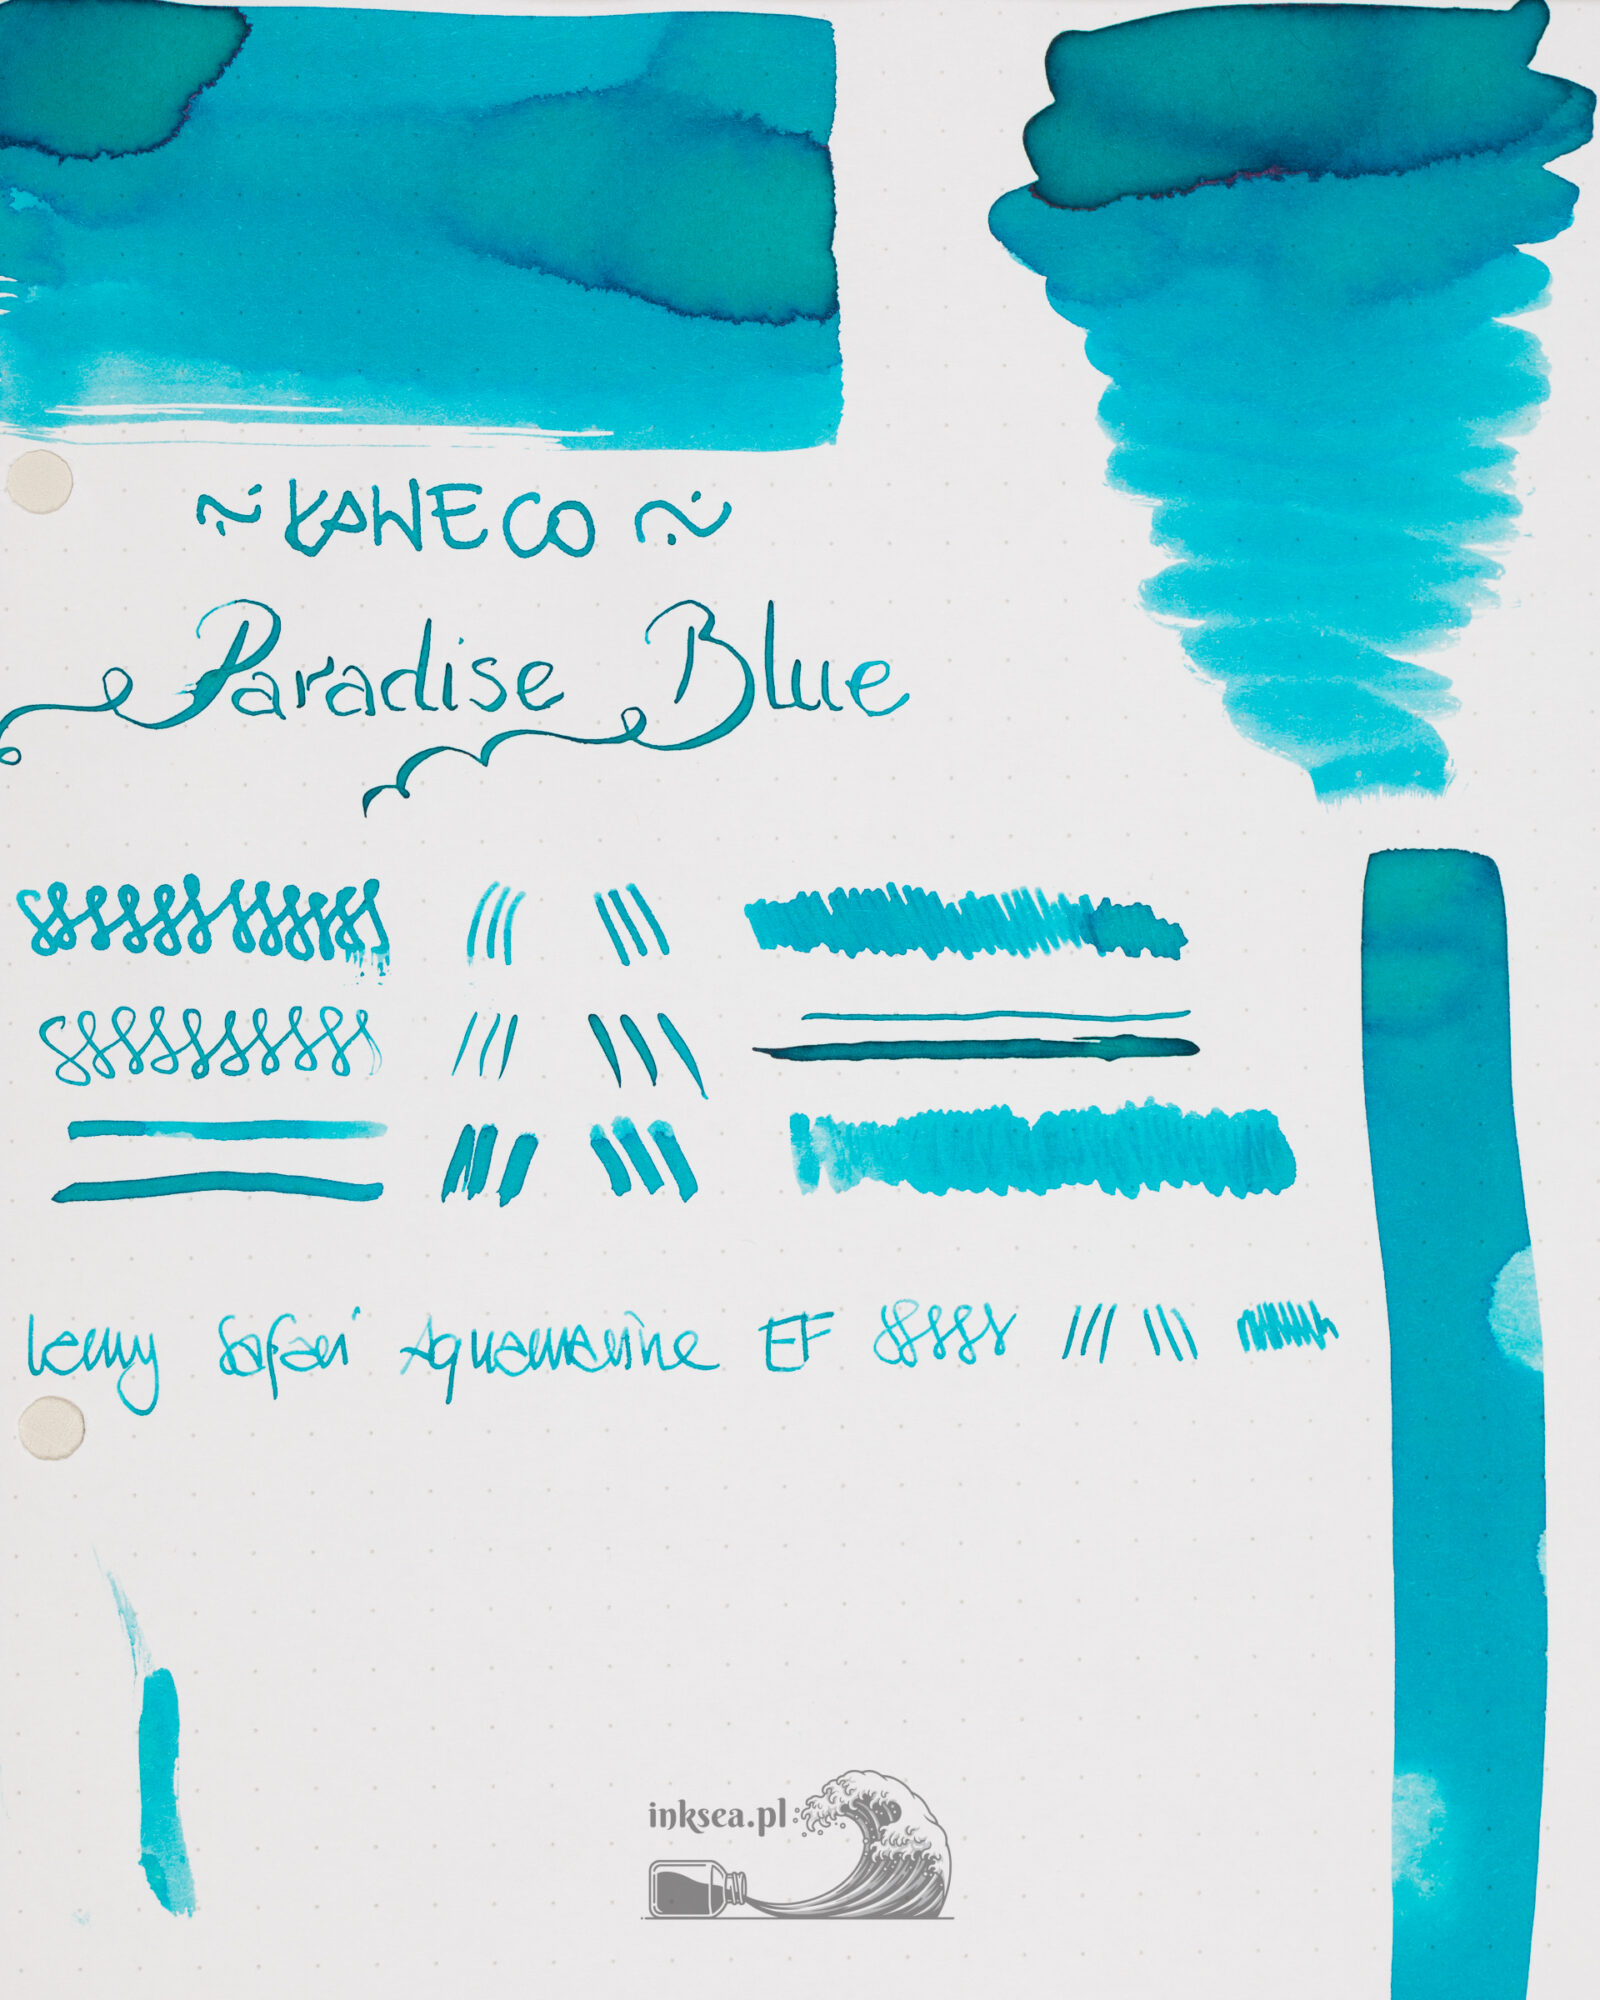 ~ KAWECO ~
Paradise Blue
Lamy Safari Aquamarine EF
inksea.pl